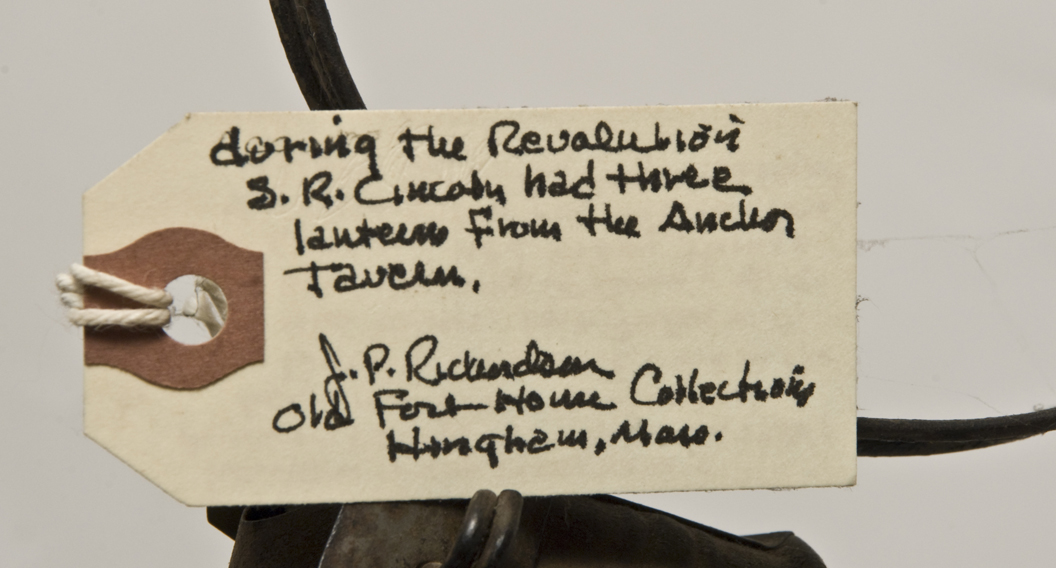 during the Revolution
S. R. Lincoln had three
lanterns from the Anchor
Tavern.
J. P. Richardson
Old Fort House Collection
Hingham, Mass.